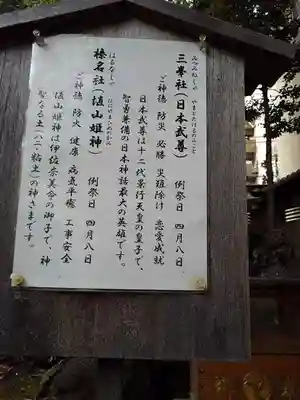 みつみねしゃ やまとたけるのみこと
三峯社(日本武尊) 例祭日 四月八日
ご神徳 防災 必勝 災難除け 恋愛成就
日本武尊は十二代景行天皇の皇子で、
智勇兼備の日本神話最大の英雄です。
はるなしゃ はにやまひめのかみ
榛名社(埴山姫神) 例祭日 四月八日
ご神徳 防火 健康 病気平癒 工事安全
埴山姫神は伊佐奈美命の御子で、神
聖なる土(ハニ・粘土)の神さまです。